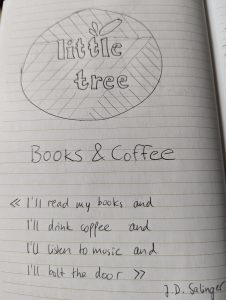 little
tree
Books & Coffee
« I'll read my books and
I'll drink coffee and
I'll listen to music and
I'll bolt the door »
J.D. Salinger